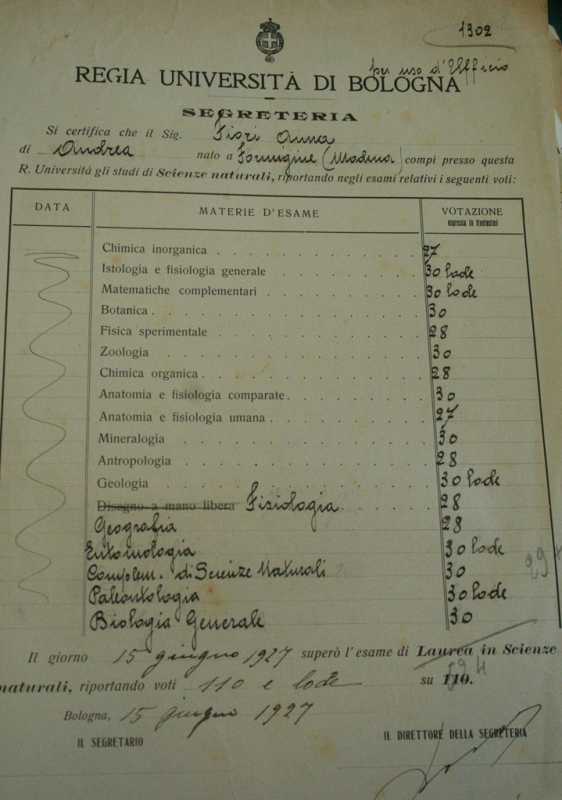 1302
per uso d'Ufficio
REGIA UNIVERSITÀ DI BOLOGNA
SEGRETERIA
Si certifica che il Sig. Fiori Anna
di Andrea nato a Formigine (Modena) compì presso questa
R. Università gli studi di Scienze naturali, riportando negli esami relativi i seguenti voti:
DATA MATERIE D'ESAME VOTAZIONE
espressa in trentesimi
Chimica inorganica 27
Istologia e fisiologia generale 30 lode
Matematiche complementari 30 lode
Botanica 30
Fisica sperimentale 28
Zoologia 30
Chimica organica 28
Anatomia e fisiologia comparate 30
Anatomia e fisiologia umana 27
Mineralogia 30
Antropologia 28
Geologia 30 lode
Disegno a mano libera Fisiologia 28
Geografia 28
Entomologia 30 lode
Complem. di Scienze Naturali 30
Paleontologia 30 lode
Biologia Generale 30
Il giorno 15 giugno 1927 superò l'esame di Laurea in Scienze
naturali, riportando voti 110 e lode su 110.
Bologna, 15 giugno 1927
IL SEGRETARIO IL DIRETTORE DELLA SEGRETERIA